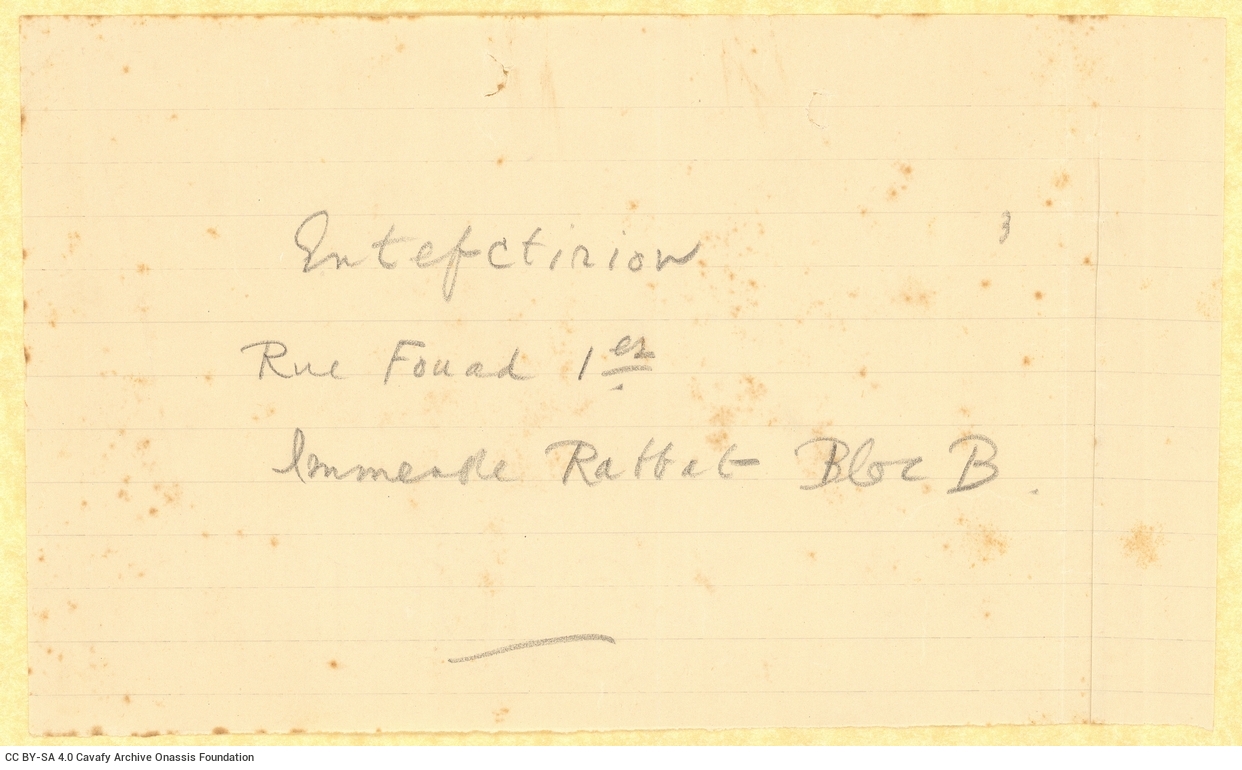 Entefctirion
Rue Fouad 1er
Immeuble Rabbat Bloc B.
CC BY-SA 4.0 Cavafy Archive Onassis Foundation